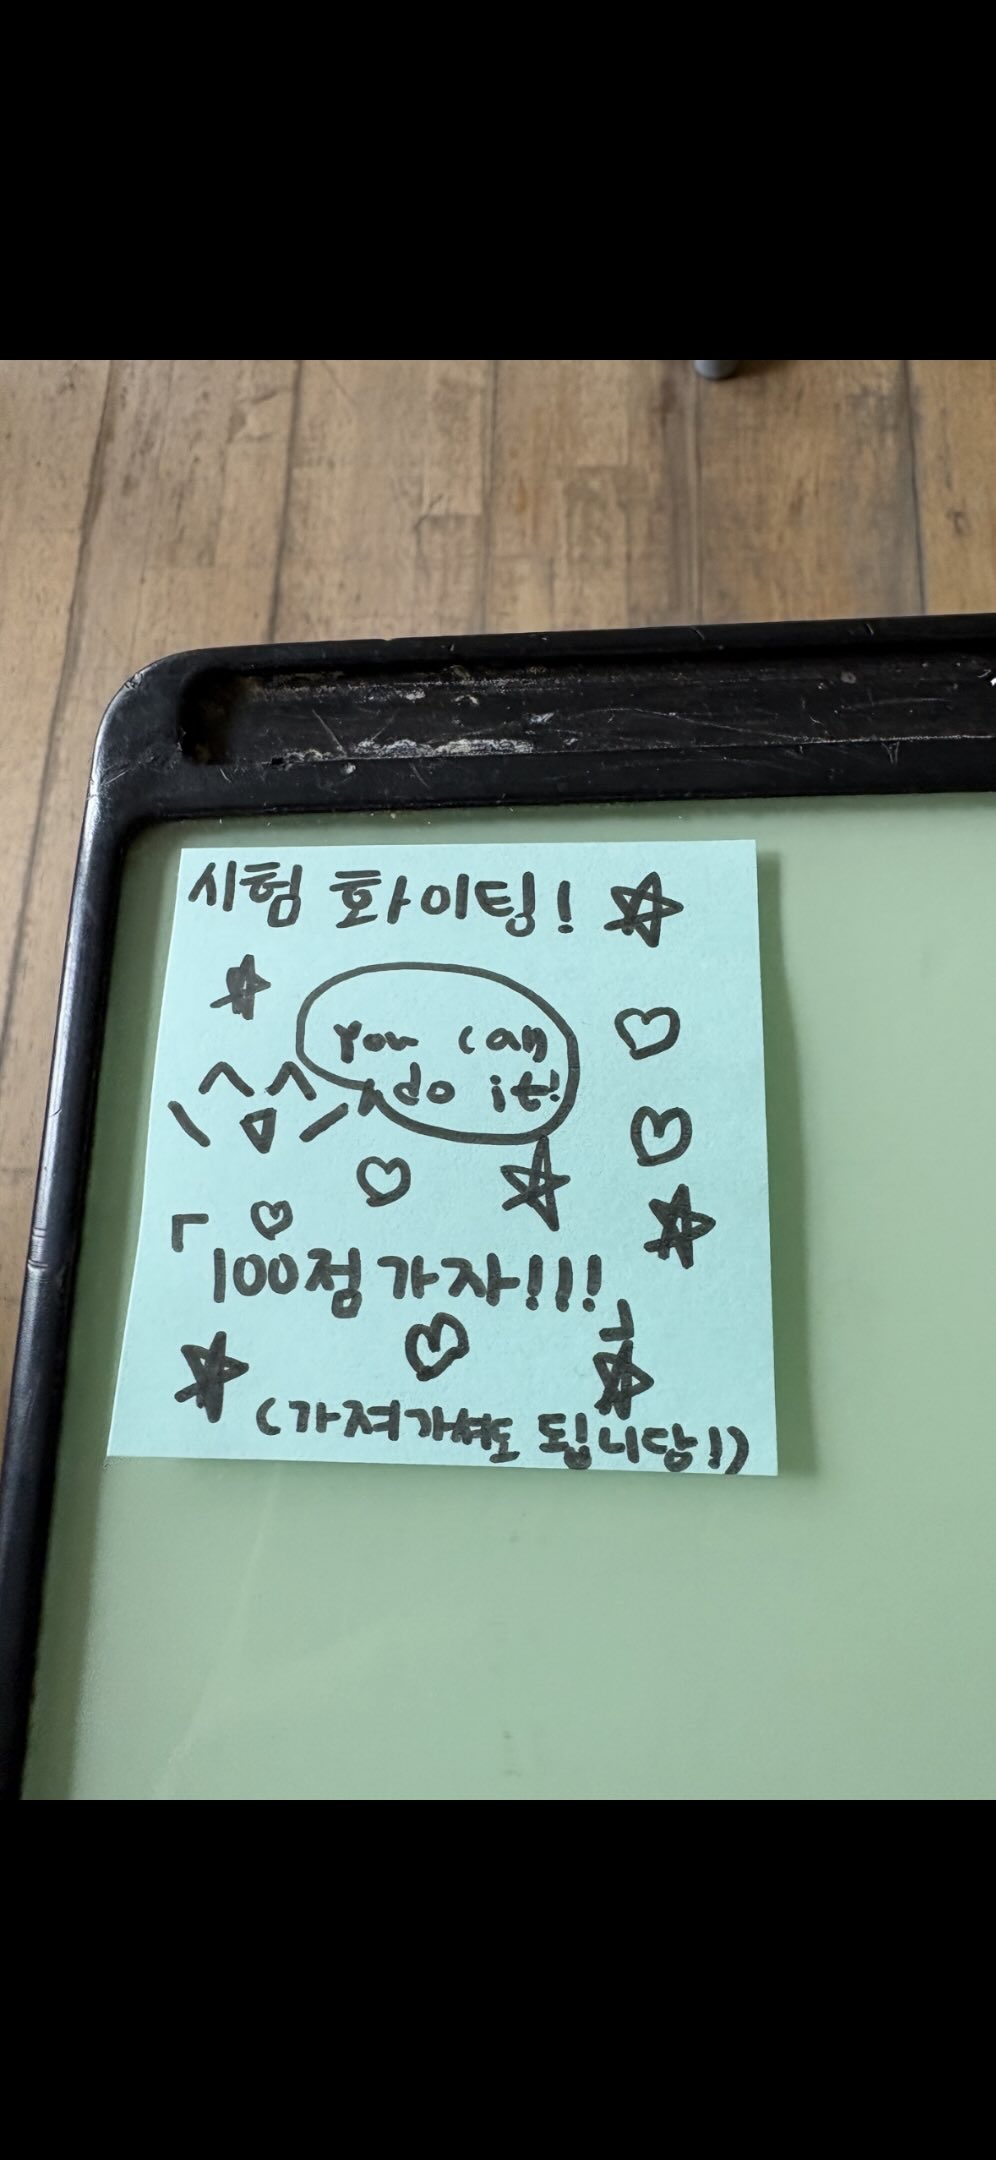 시험 화이팅!
you can
do it!
「100점 가자!!!」
(가져가셔도 됩니당!)